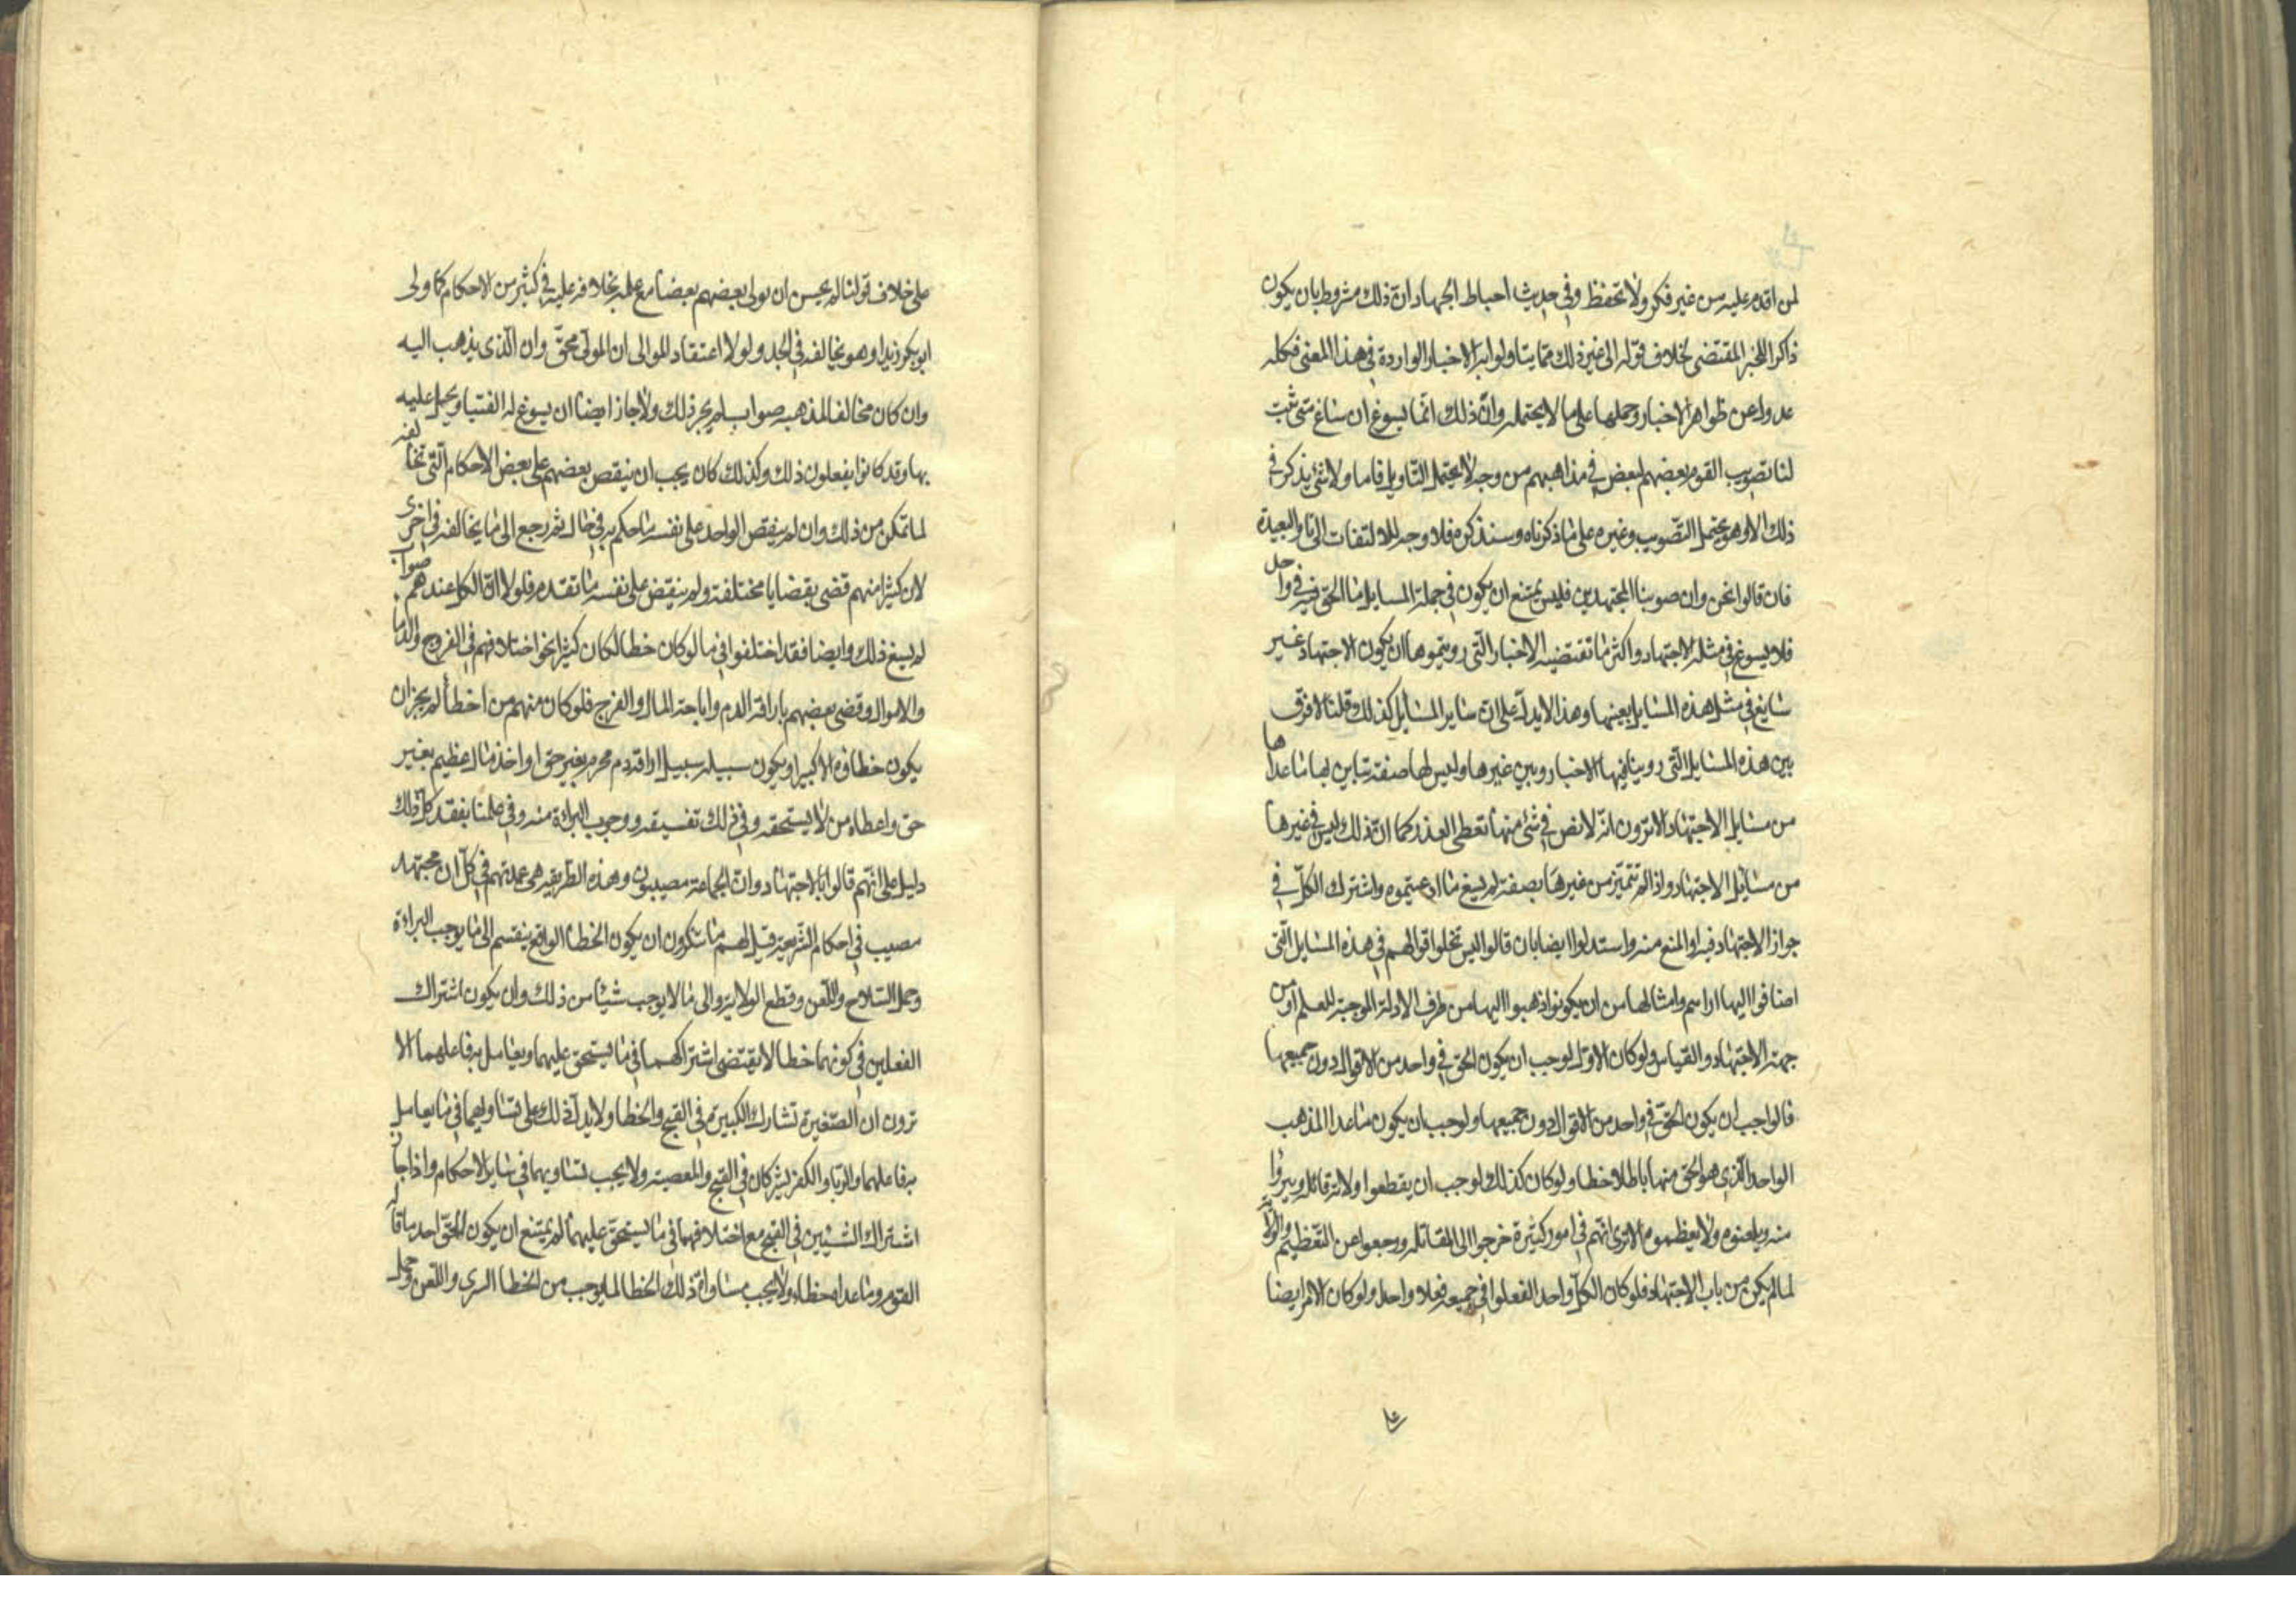 لمن اقدم عليه من غير فكر ولا تحفظ وفي حديث احباط الجهاد ان ذلك مشروط بان يكون
ذاكرا للخبر المقتضى لخلاف قوله الى غير ذلك مما يتاولوا به الاخبار الواردة في هذا المعنى فكله
عدول عن ظواهر الاخبار وحملها على ما لا يحتمله وان ذلك انما يسوغ ان ساغ متى ثبت
لنا تصويب القوم بعضهم لبعض في مذاهبهم من وجه لا يحتمل التاويل فاما ولا شئ يذكر في
ذلك الا وهو يحتمل التصويب وغيره على ما ذكرناه وسنذكره فلا وجه للالتفات الى التاويل البعيدة
فان قالوا نحن وان صوبنا المجتهدين فليس يمتنع ان يكون في جملة المسايل ما الحق فيه في واحد
فلا يسوغ في مثله الاجتهاد واكثر ما تقتضيه الاخبار التي رويتموها ان يكون الاجتهاد غير
سايغ في مثل هذه المسايل بعينها وهذا لا يدل على ان ساير المسايل كذلك قلنا لا فرق
بين هذه المسايل التي روينا فيها الاخبار وبين غيرها وليس لها صفة تباين بها ما عداها
من مسايل الاجتهاد الا ترون انه لا نص في شئ منها تعطى العذر كما ان ذلك ليس في غيرها
من مسايل الاجتهاد واذا لم تتميز من غيرها بصفة لم يسغ ما ادعيتموه واشترك الكل في
جواز الاجتهاد فيه او المنع منه واستدلوا ايضا بان قالوا ليس تخلوا اقوالهم في هذه المسايل التي
اضافوا اليها اراسم وامثالها من ان يكونوا ذهبوا اليها من طرق الادلة الموجبة للعلم او من
جهة الاجتهاد والقياس ولو كان الاول لوجب ان يكون الحق في واحد من الاقوال دون جميعها
قالوا جب ان يكون الحق في واحد من الاقوال دون جميعها ولوجب ان يكون ما عدا المذهب
الواحد الذي هو الحق منها باطلا خطا ولو كان كذلك لوجب ان يقطعوا ولاية قائله ويبرؤا
منه ويلعنوه ولا يعظموه الا ترى انهم في امور كثيرة خرجوا الى المقاتلة ورجعوا عن التعظيم والولاية
لما لم يكن من باب الاجتهاد فلو كان الكل واحدا لفعلوا في جميعه فعلا واحدا ولو كان الامر ايضا
على خلاف قولنا لم يحسن ان يولى بعضهم بعضا مع علمه بخلافه عليه في كثير من الاحكام كما ولى
ابو بكر زيدا وهو يخالفه في الجد ولولا اعتقاد الموالى ان المولى محق وان الذي يذهب اليه
وان كان مخالفا لمذهبه صواب لم يجز ذلك ولا جاز ايضا ان يسوغ له الفتيا ويحيل عليه
بها وقد كانوا يفعلون ذلك وكذلك كان يجب ان ينقص بعضهم على بعض الاحكام التي تخالفه
لما تمكن من ذلك وان لم ينقص الواحد على نفسه ما حكم به في حال ثم رجع الى ما يخالفه في اخرى
لان كثيرا منهم قضى بقضايا مختلفة ولم ينقض على نفسه ما تقدم فلولا ان الكل عندهم صواب
لم يسغ ذلك وايضا فقد اختلفوا في ما لو كان خطا لكان كثيرا نحو اختلافهم في الفروج والدما
والاموال وقضى بعضهم باراقة الدم واباحة المال والفرج فلو كان منهم من اخطأ لم يجز ان
يكون خطاؤه الا كبيرا ويكون سبيله سبيل اراقة دم محرم بغير حق او اخذ مال عظيم بغير
حق واعطاه من لا يستحقه وفي ذلك تفسيقه ووجوب البراءة منه وفي علمنا بفقد كل ذلك
دليل على انهم قالوا بالاجتهاد وان الجماعة مصيبون وهذه الطريقة هي عمدتهم في كل ان مجتهد
مصيب في احكام الشريعة قيل لهم ما تنكرون ان يكون الخطا الواقع ينقسم الى ما يوجب البراءة
وحمل السلاح واللعن وقطع الولاية والى ما لا يوجب شيئا من ذلك وان يكون اشتراك
الفعلين في كونهما خطا لا يقتضى اشتراكهما في ما يستحق عليهما ويعامل به فاعلهما الا
ترون ان الصغيرة تشارك الكبيرة في القبح والخطا ولا يدل ذلك على تساويهما في ما يعامل
به فاعلهما والزنا والكفر يشركان في القبح والمعصية ولا يجب تساويهما في ساير الاحكام واذا جاز
اشتراك الشيئين في القبح مع اختلافهما في ما يستحق عليهما لم يمتنع ان يكون الحق احد ما قاله
القوم وما عداه خطاء ولا يجب مساواة ذلك الخطا لما يوجب من الخطا البري واللعن وحمل